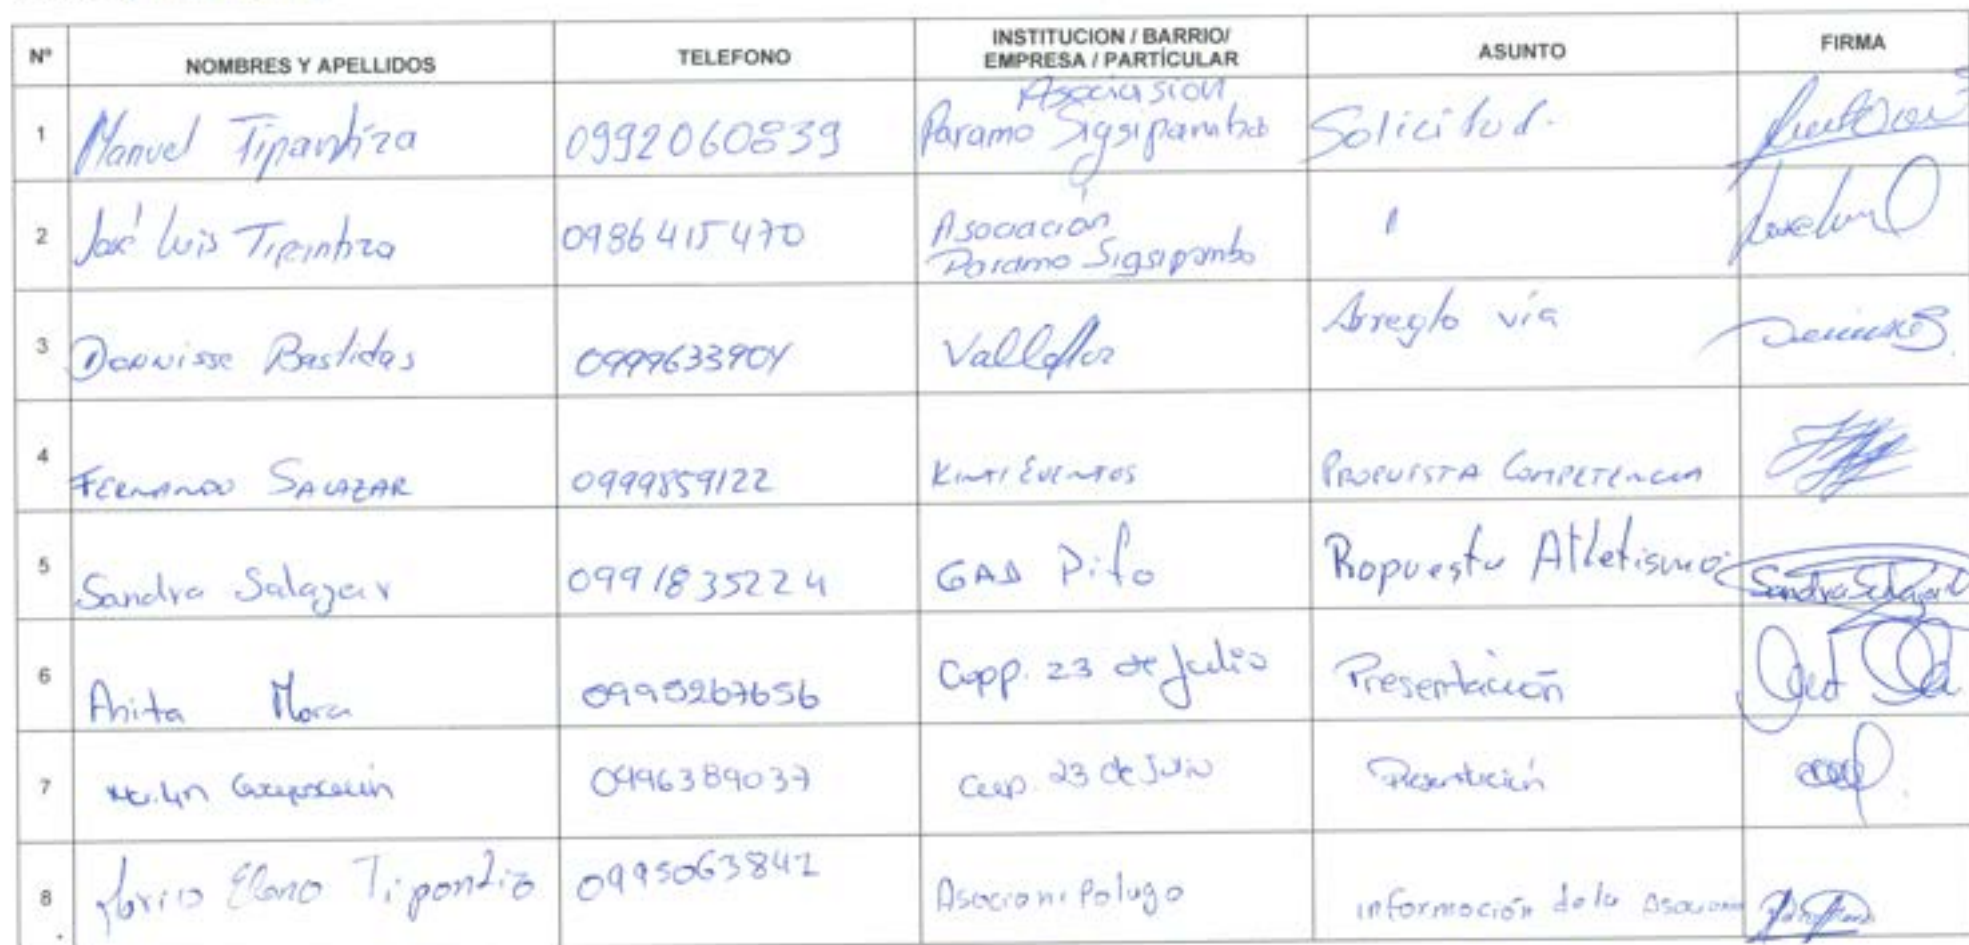 Nº NOMBRES Y APELLIDOS TELEFONO INSTITUCION / BARRIO/ EMPRESA / PARTÍCULAR ASUNTO FIRMA
1 Manuel Tipantiza 0992060839 Asociasion Paramo Sigsipamba Solicitud.
2 José Luis Tipantiza 0986415470 Asociación Paramo Sigsipamba "
3 Dennisse Bastidas 0999633904 Valleflor Arreglo vía
4 FERNANDO SALAZAR 0999859122 KINTI EVENTOS PROPUESTA COMPETENCIA
5 Sandra Salazar 0991835224 GAD Pifo Propuesta Atletismo Sandra Salazar
6 Anita Mora 0995267656 Coop. 23 de Julio Presentación
7 0996389037 Coop. 23 de Julio Presentación
8 Elena Tipantiza 0995063841 Asocioni Polugo información de la Asocion